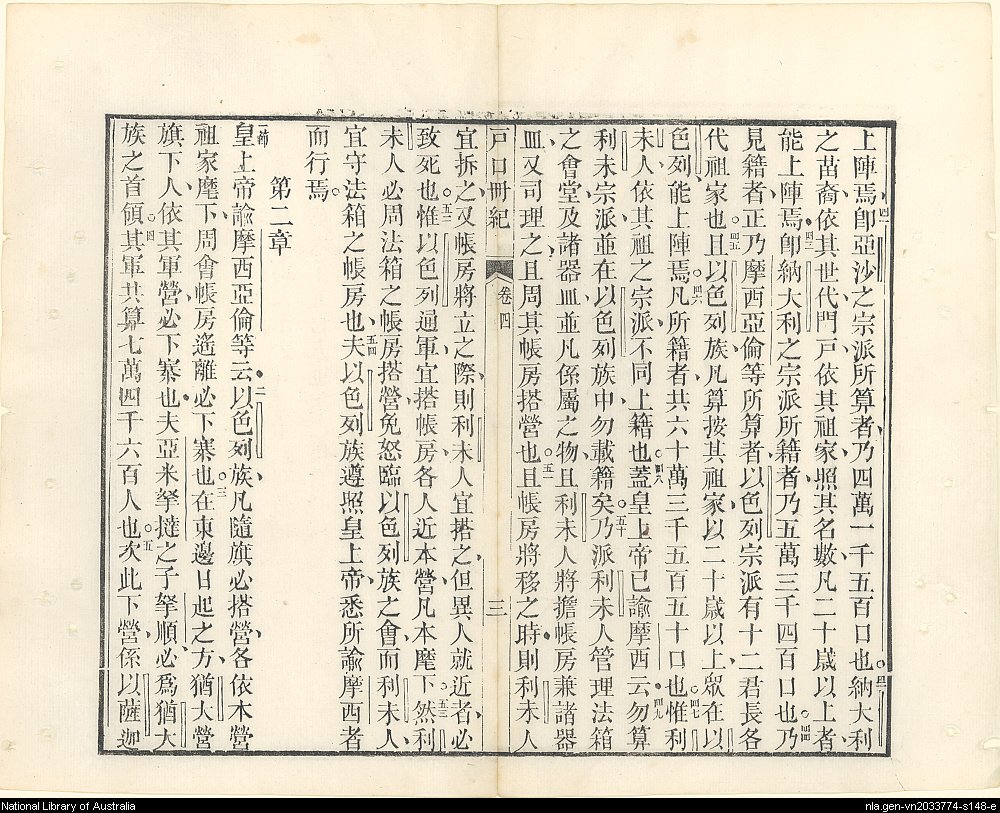 上陣焉四一卽亞沙之宗派所算者乃四萬一千五百口也四二納大利
之苗裔依其世代門戶依其祖家照其名數凡二十歲以上者
能上陣焉四三卽納大利之宗派所籍者乃五萬三千四百口也四四乃
見籍者正乃摩西亞倫等所算者以色列宗派有十二君長各
代祖家也四五且以色列族凡算按其祖家以二十歲以上眾在以
色列能上陣焉四六凡所籍者共六十萬三千五百五十口也四七惟利
未人依其祖之宗派不同上籍也四八蓋皇上帝已諭摩西云四九勿算
利未宗派並在以色列族中勿載籍矣五十乃派利未人管理法箱
之會堂及諸器皿並凡係屬之物且利未人將擔帳房兼諸器
皿又司理之且周其帳房搭營也五一且帳房將移之時則利未人
戶口冊紀 卷四 三
宜拆之又帳房將立之際則利未人宜搭之但異人就近者必
致死也五二惟以色列通軍宜搭帳房各人近本營凡本麾下五三然利
未人必周法箱之帳房搭營免怒臨以色列族之會而利未人
宜守法箱之帳房也五四夫以色列族遵照皇上帝悉所諭摩西者
而行焉
第二章
一節皇上帝諭摩西亞倫等云二以色列族凡隨旗必搭營各依本營
祖家麾下周會帳房遙離必下寨也三在東邊日起之方猶大營
旗下人依其軍營必下寨也夫亞米拏撻之子拏順必爲猶大
族之首領四其軍共算七萬四千六百人也五次此下營係以薩迦
National Library of Australia
nla.gen-vn2033774-s148-e